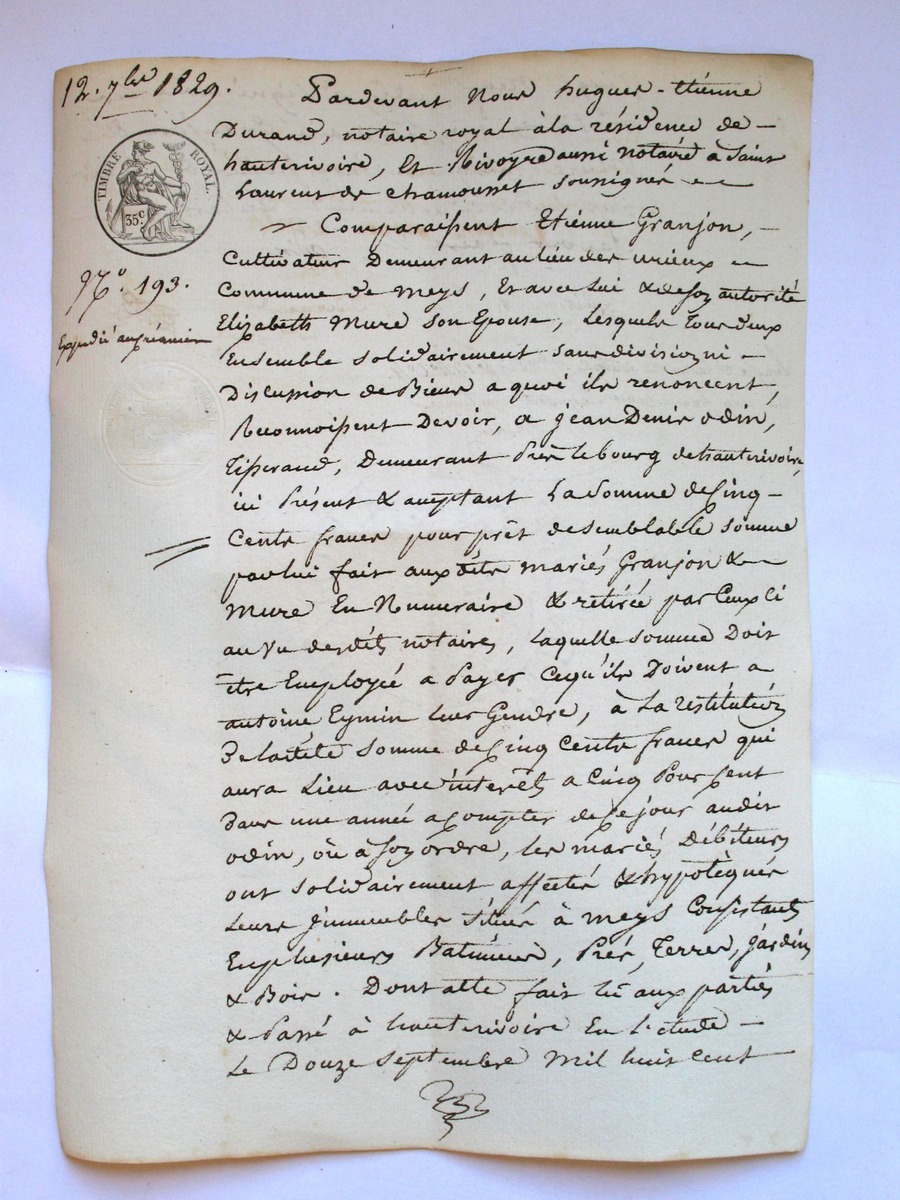 12. 7bre 1829.
TIMBRE ROYAL.
35 c.
N.o 193.
Expédié au créancier
Pardevant Nous hugues-Etiénne
Durand, notaire royal à la résidence de
hauterivoire, Et Rivoyre aussi notaire à Saint
Laurent de Chamousset soussignés
Comparaissent Etienne Granjon,
Cultivateur Demeurant au lieu des
Commune de Meys, Et avec Lui & de son autorité
Elizabeth Mure son Epouse, Lesquels tous deux
Ensemble solidairement sans division ni
Discussion de Biens a quoi ils renoncent,
Reconnoissent Devoir, a Jean Denis odin,
Tisserand, Demeurant Près le bourg de hauterivoire,
ici Présent & acceptant La Somme de Cinq
Cents francs pour prêt de semblable somme
par lui fait aux dits mariés Granjon &
Mure En Numeraire & retirée par Ceux Ci
au Vu des dits notaires, Laquelle somme Doit
être Employée a Payer Ce qu'ils Doivent a
antoine Eymin leur Gendre, à La restitution
De la dite somme de Cinq Cents francs qui
aura Lieu avec interêts a Cinq Pour Cent
Dans une année a Compter de Ce jour audit
odin, où à son ordre, les mariés Débiteurs
ont solidairement affectés & hypotèqués
Leurs Jmmeubles situés à Meys Consistants
En plusieurs Batimens, Prés, Terres, Jardin
& Bois. Dont acte fait lu aux parties
& Passé à hauterivoire En l'etude
Le Douze septembre Mil huit Cent